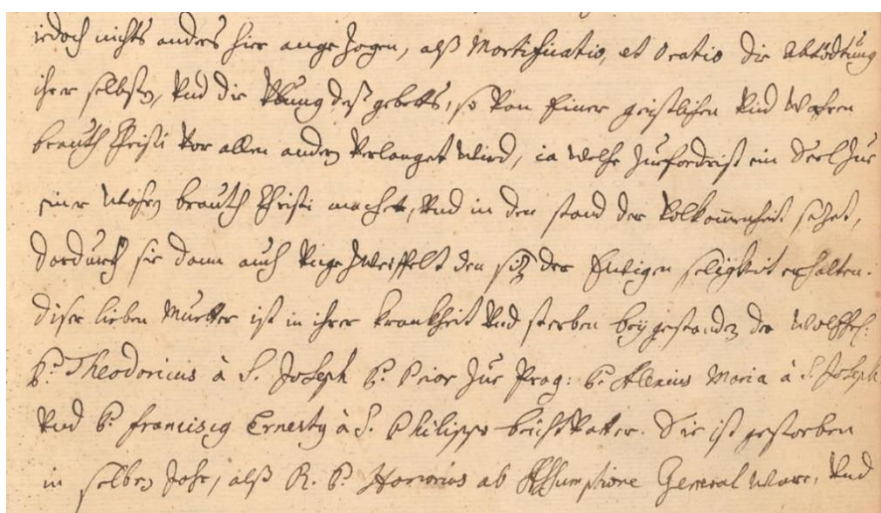 iedoch nichts anders hier angezogen, alß Mortificatio, et Oratio die Abtödtung
ihrer selbsten, vnd die vbung deß gebetts, so von Einer geistlichen vnd wahren
brauth Christi vor allen andern verlanget wird, ia welche zurforderist ein Seel zur
einer wahren brauth Christi machet, vnd in den stand der volkommenheit setzet,
dardurch sie dann auch vngezweiffelt den sitz der Ewigen seligkeit erhalten.
diser lieben Mutter ist in ihrer kranckheit vnd sterben beÿgestanden der
P: Theodoricus à S. Joseph P. Prior zur Prag: P. Alexius Maria à S. Joseph
vnd P: Franciscus Ernesty à S. Philippo beichtvatter. Sie ist gestorben
in selben Jahr, alß R. P. Honorius ab Assumptione General ware, vnd